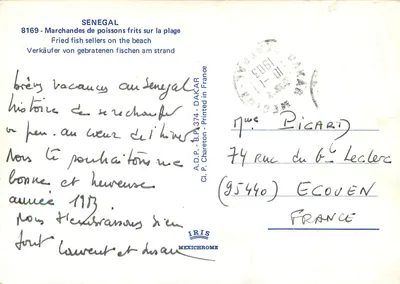 SENEGAL
8169 - Marchandes de poissons frits sur la plage
Fried fish sellers on the beach
Verkäufer von gebratenen fischen am strand
brèves vacances au Sénégal
histoire de se réchauffer
un peu au cœur de l'hiver
Nous te souhaitons une
bonne et heureuse
année 1983
nous t'embrassons bien
fort Laurent et
A.D.P. - B.P. 374 - DAKAR
Cl. P. Chareton - Printed in France
IRIS
MEXICHROME
DAKAR
Mme PICARD
74 rue du Gal Leclerc
(95440) ECOUEN
FRANCE